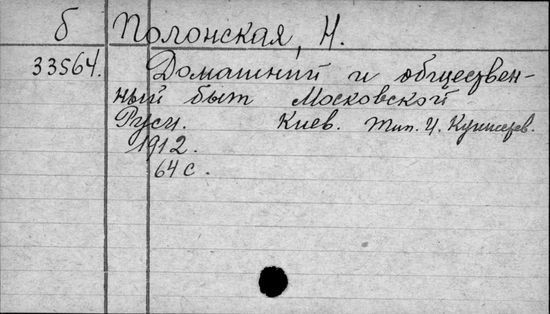 б Полонская, Н.
33564. Домашний и обществен-
ный быт Московской
Руси. Киев. Тип. И.
1912.
64 с.